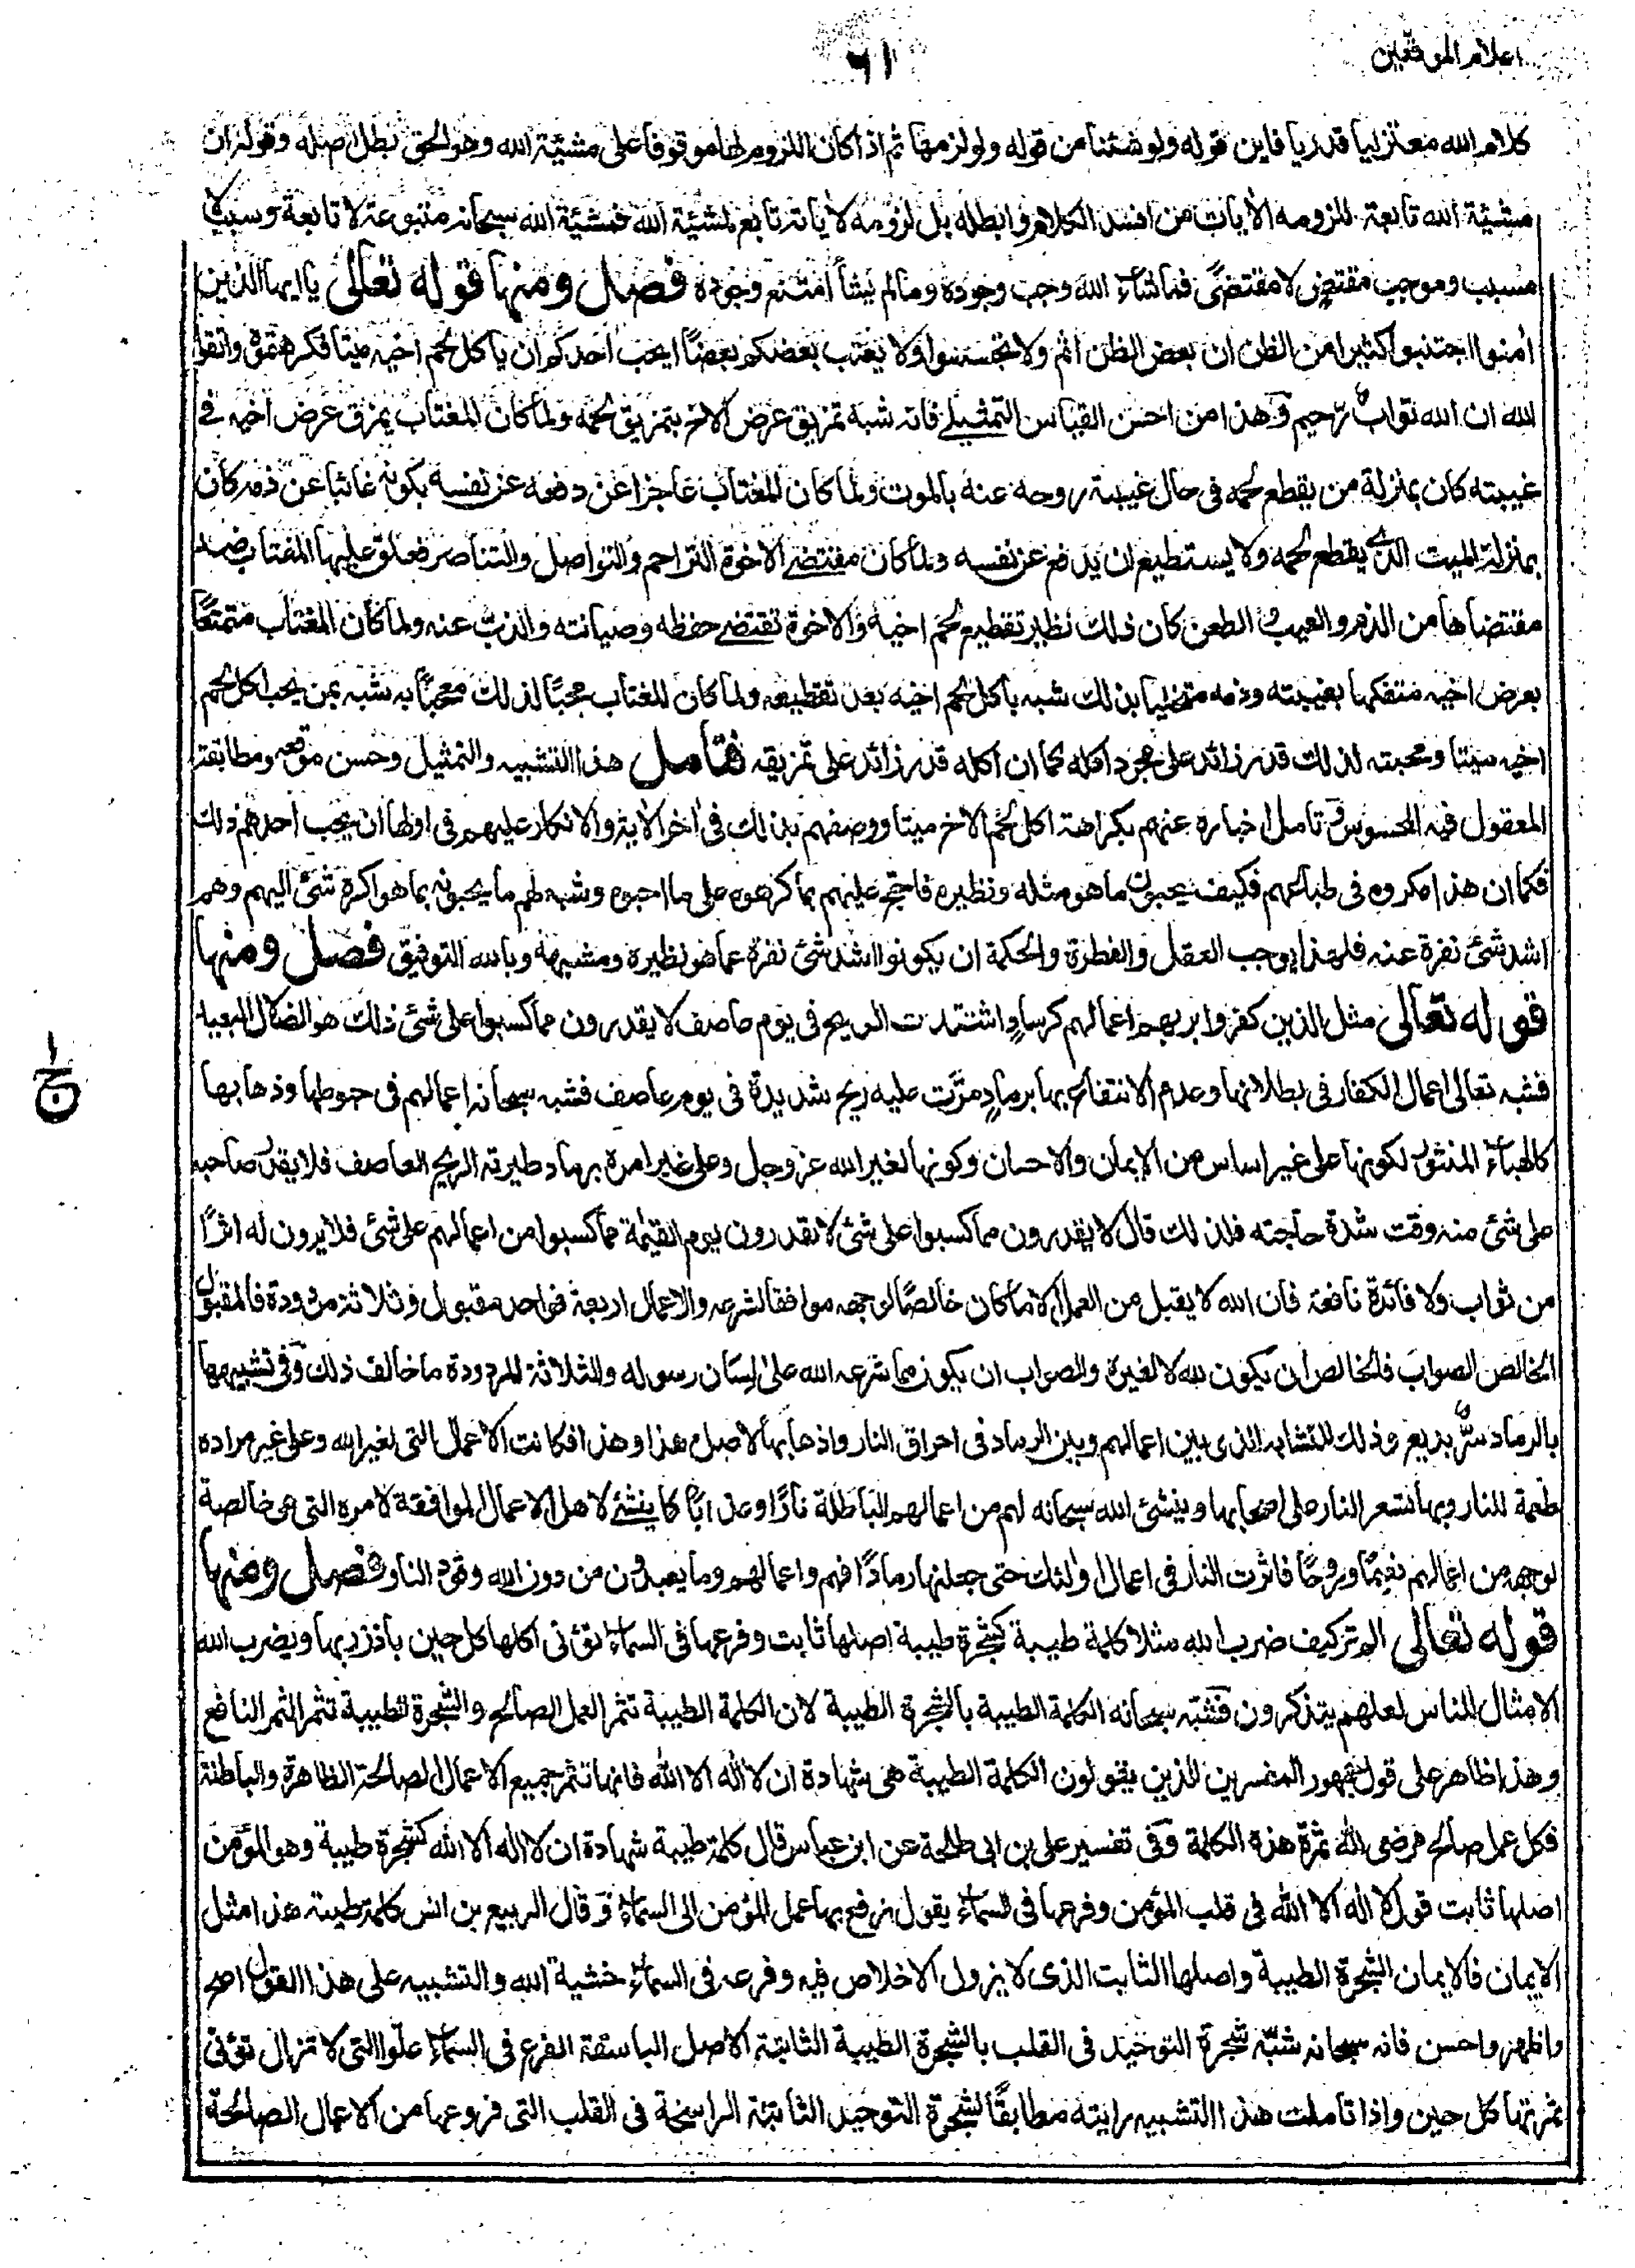 اعلام الموقعين
٦١
كلام الله معتزليا قدريا فاين قوله ولو شئنا من قوله ولو لزمها ثم اذا كان اللزوم لها موقوفا على مشيئة الله وهو الحق بطل اصله وقوله ان
مشيئة الله تابعة للزومه الأيات من افسد الكلام وابطله بل لزومه لأياته تابع لمشيئة الله فمشيئة الله سبحانه متبوعة لا تابعة وسبب لا
مسبب وموجب مقتض لا مقتضًى فما شاء الله وجب وجوده وما لم يشأ امتنع وجوده فصل ومنها قوله تعالى يا ايها الذين
أمنوا اجتنبوا كثيرا من الظن ان بعض الظن اثم ولا تجسسوا ولا يغتب بعضكم بعضًا ايحب احدكم ان ياكل لحم اخيه ميتا فكرهتموه واتقوا
الله ان الله تواب رّحيم وهذا من احسن القياس التمثيلے فانه شبه تمزيق عرض الاخ بتمزيق لحمه ولما كان المغتاب يمزق عرض اخيه فے
غيبته كان بمنزلة من يقطع لحمه فى حال غيبة روحه عنه بالموت ولما كان المغتاب عاجزا عن دفعه عن نفسه بكونه غائبا عن ذمه كان
بمنزلة الميت الذے يقطع لحمه ولا يستطيع ان يدفع عن نفسه ولما كان مقتضے الاخوة التراحم والتواصل والتناصر فعلق عليها المغتاب ضد
مقتضاها من الذم والعيب والطعن كان ذلك نظير تقطيع لحم اخيه والاخوة تقتضے حفظه وصيانته والذب عنه ولما كان المغتاب متمتعًا
بعرض اخيه متفكها بغيبته وذمه متحليا بذلك شبه بأكل لحم اخيه بعد تقطيعه ولما كان المغتاب محبًا لذلك معجبًا به شبه بمن يحب اكل لحم
اخيه ميتا ومحبته لذلك قدر زائد على مجرد اكله كما ان اكله قدر زائد على تمزيقه فتأمل هذا التشبيه والتمثيل وحسن موقعه ومطابقة
المعقول فيه المحسوس وتامل اخباره عنهم بكراهة اكل لحم الاخ ميتا ووصفهم بذلك فى أخر الأية والانكار عليهم فى اولها ان يحب احدهم ذلك
فكما ان هذا مكروه فى طباعهم فكيف يحبون ما هو مثله ونظيره فاحتج عليهم بما كرهوه على ما احبوه وشبه لهم ما يحبونه بما هو اكره شئ اليهم وهم
اشد شئ نفرة عنه فلهذا يوجب العقل والفطرة والحكمة ان يكونوا اشد شئ نفرة عما هو نظيره ومشبهه وبالله التوفيق فصل ومنها
قوله تعالى مثل الذين كفروا بربهم اعمالهم كرمادٍ اشتدت به الريح فى يوم عاصف لا يقدرون مما كسبوا على شئ ذلك هو الضلال البعيد
فشبه تعالى اعمال الكفار فى بطلانها وعدم الانتفاع بها برمادٍ مرّت عليه ريح شديدة فى يوم عاصف فشبه سبحانه اعمالهم فى حبوطها وذهابها
كالهباء المنثور لكونها على غير اساس من الايمان والاحسان وكونها لغير الله عز وجل وعلى غير امره برماد طيرته الريح العاصف فلا يقدر صاحبه
على شئ منه وقت شدة حاجته فلذلك قال لا يقدرون مما كسبوا على شئ لا يقدرون يوم القيٰمة مما كسبوا من اعمالهم على شئ فلا يرون له اثرًا
من ثواب ولا فائدة نافعة فان الله لا يقبل من العمل الا ما كان خالصًا لوجهه موافقا لشرعه والاعمال اربعة فواحد مقبول وثلاثة مردودة فالمقبول
الخالص الصواب فالخالص ان يكون لله لا لغيره والصواب ان يكون مما شرعه الله على لسان رسوله والثلاثة المردودة ما خالف ذلك وفى تشبيهها
بالرماد سرّ بديع وذلك للتشابه الذى بين اعمالهم وبين الرماد فى احراق النار واذهابها لاصل هذا وهذا فكانت الاعمال التى لغير الله وعلى غير مراده
طعمة للنار وبها تسعر النار على اصحابها وينشئ الله سبحانه لهم من اعمالهم الباطلة نارًا وعذابًا كما ينشئ لاهل الاعمال الموافقة لامره التى هى خالصة
لوجهه من اعمالهم نعيمًا وروحًا فاثرت النار فى اعمال اولٰئك حتى جعلتها رمادًا فهم واعمالهم وما يعبدون من دون الله وقود النار فصل ومنها
قوله تعالى الم تر كيف ضرب الله مثلا كلمة طيبة كشجرة طيبة اصلها ثابت وفرعها فى السماء تؤتى اكلها كل حين باذن ربها ويضرب الله
الامثال للناس لعلهم يتذكرون فشبّه سبحانه الكلمة الطيبة بالشجرة الطيبة لان الكلمة الطيبة تثمر العمل الصالح والشجرة الطيبة تثمر الثمر النافع
وهذا ظاهر على قول جمهور المفسرين الذين يقولون الكلمة الطيبة هى شهادة ان لا اله الا الله فانها تثمر جميع الاعمال الصالحة الظاهرة والباطنة
فكل عمل صالح مرضى لله ثمرة هذه الكلمة وفى تفسير على بن ابى طلحة عن ابن عباس قال كلمة طيبة شهادة ان لا اله الا الله كشجرة طيبة وهو المؤمن
اصلها ثابت قول لا اله الا الله فى قلب المؤمن وفرعها فى السماء يقول يرفع بها عمل المؤمن الى السماء وقال الربيع بن انس كلمة طيبة هذا مثل
الايمان فالايمان الشجرة الطيبة واصلها الثابت الذى لا يزول الاخلاص فيه وفرعه فى السماء خشية الله والتشبيه على هذا القول اصح
واظهر واحسن فانه سبحانه شبّه شجرة التوحيد فى القلب بالشجرة الطيبة الثابتة الاصل الباسقة الفرع فى السماء علوا التى لا تزال تؤتى
ثمرتها كل حين واذا تاملت هذا التشبيه رايته مطابقًا لشجرة التوحيد الثابتة الراسخة فى القلب التى فروعها من الاعمال الصالحة
ج ١